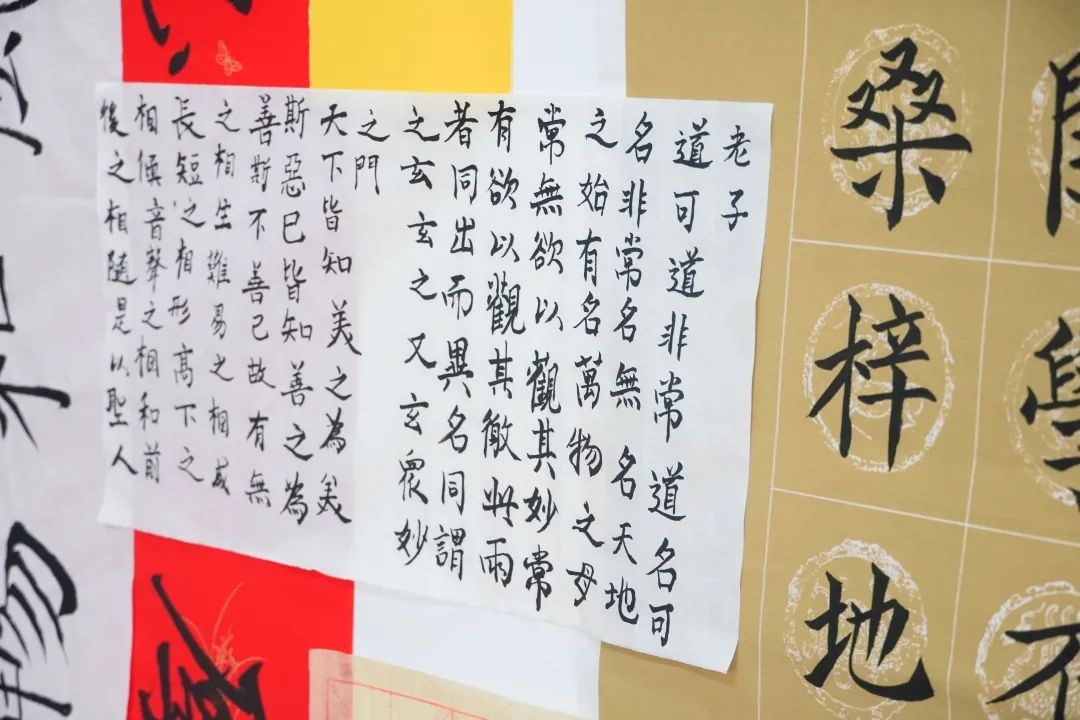 桑梓地
老子
道可道非常道名可
名非常名無名天地
之始有名萬物之母
常無欲以觀其妙常
有欲以觀其徼此兩
者同出而異名同謂
之玄玄之又玄眾妙
之門
天下皆知美之為美
斯惡已皆知善之為
善斯不善已故有無
之相生難易之相成
長短之相形高下之
相傾音聲之相和前
後之相隨是以聖人